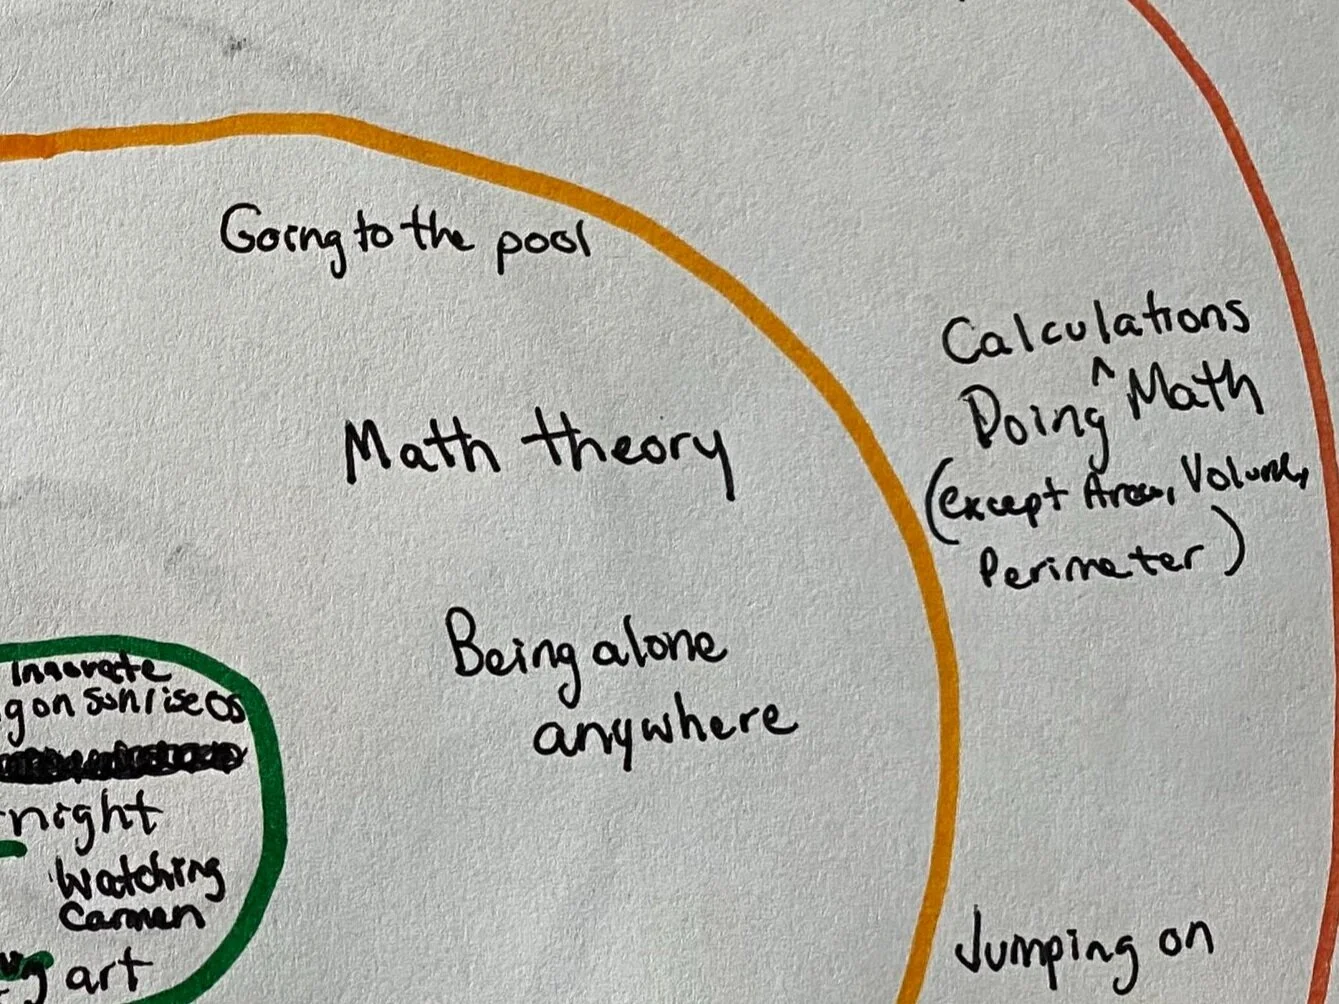 Going to the pool
Calculations
Doing ^ Math
(except Area, Volume,
Perimeter)
Math theory
Being alone
anywhere
night
Watching
Carmen
art
Jumping on